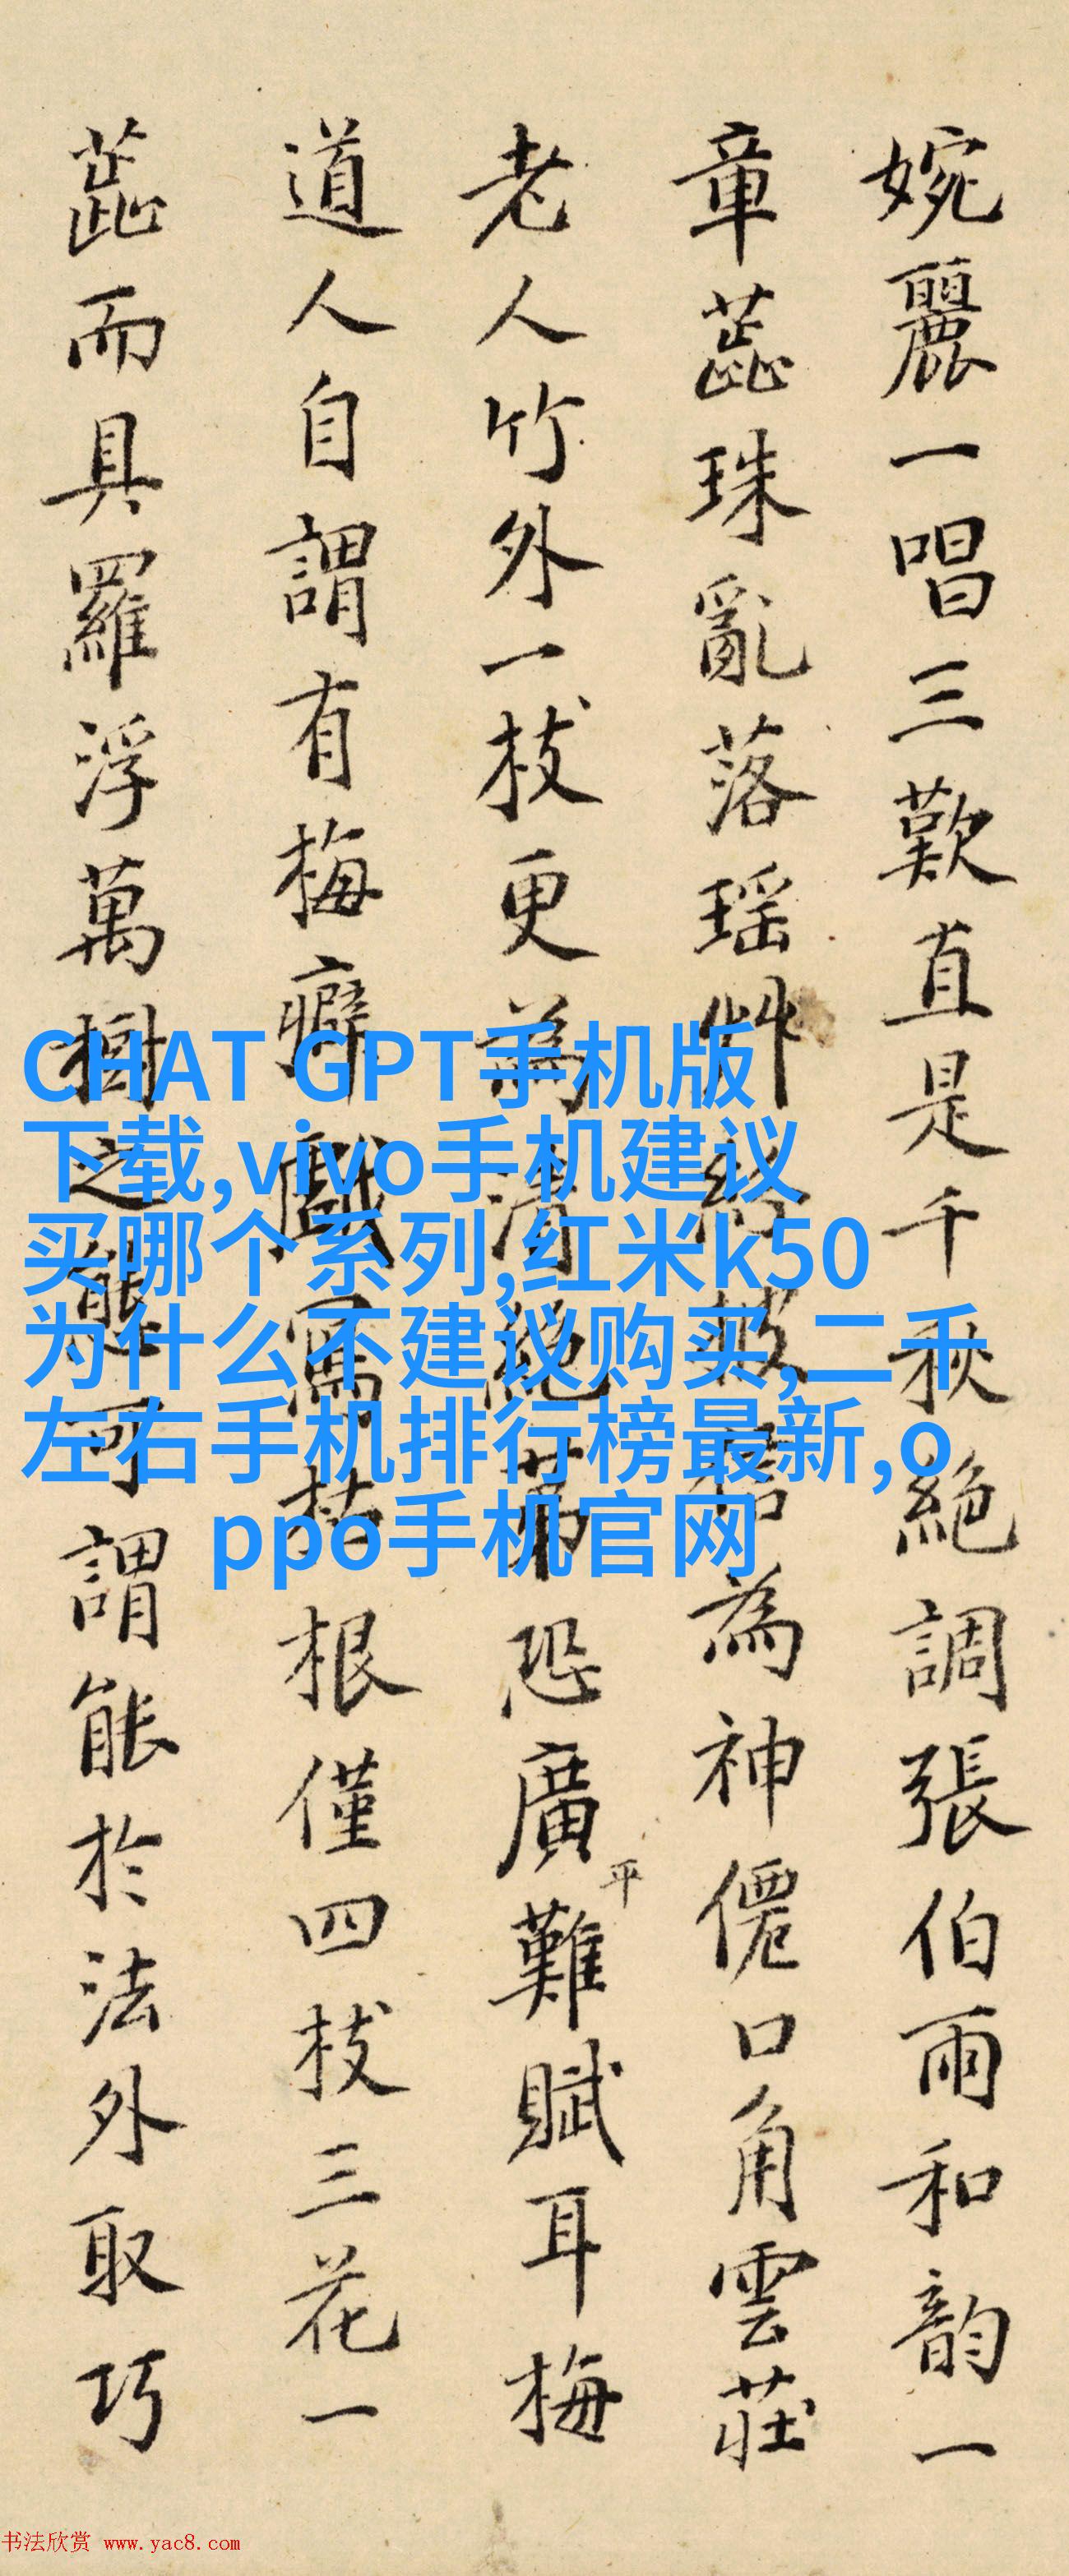 婉麗一唱三歎直是千秋絕調張伯雨和韵一
章蕋珠亂落瑶艸為神僊口角雲莊
老人竹外一枝更為清絕苐恐廣平難賦耳梅
道人自謂有梅癖戲寫枯根僅四枝三花一
蕋而具羅浮萬樹之態可謂能於法外取巧
CHAT GPT手机版
下载,vivo手机建议
买哪个系列,红米k50
为什么不建议购买,二千
左右手机排行榜最新,o
ppo手机官网
书法欣赏 www.yac8.com